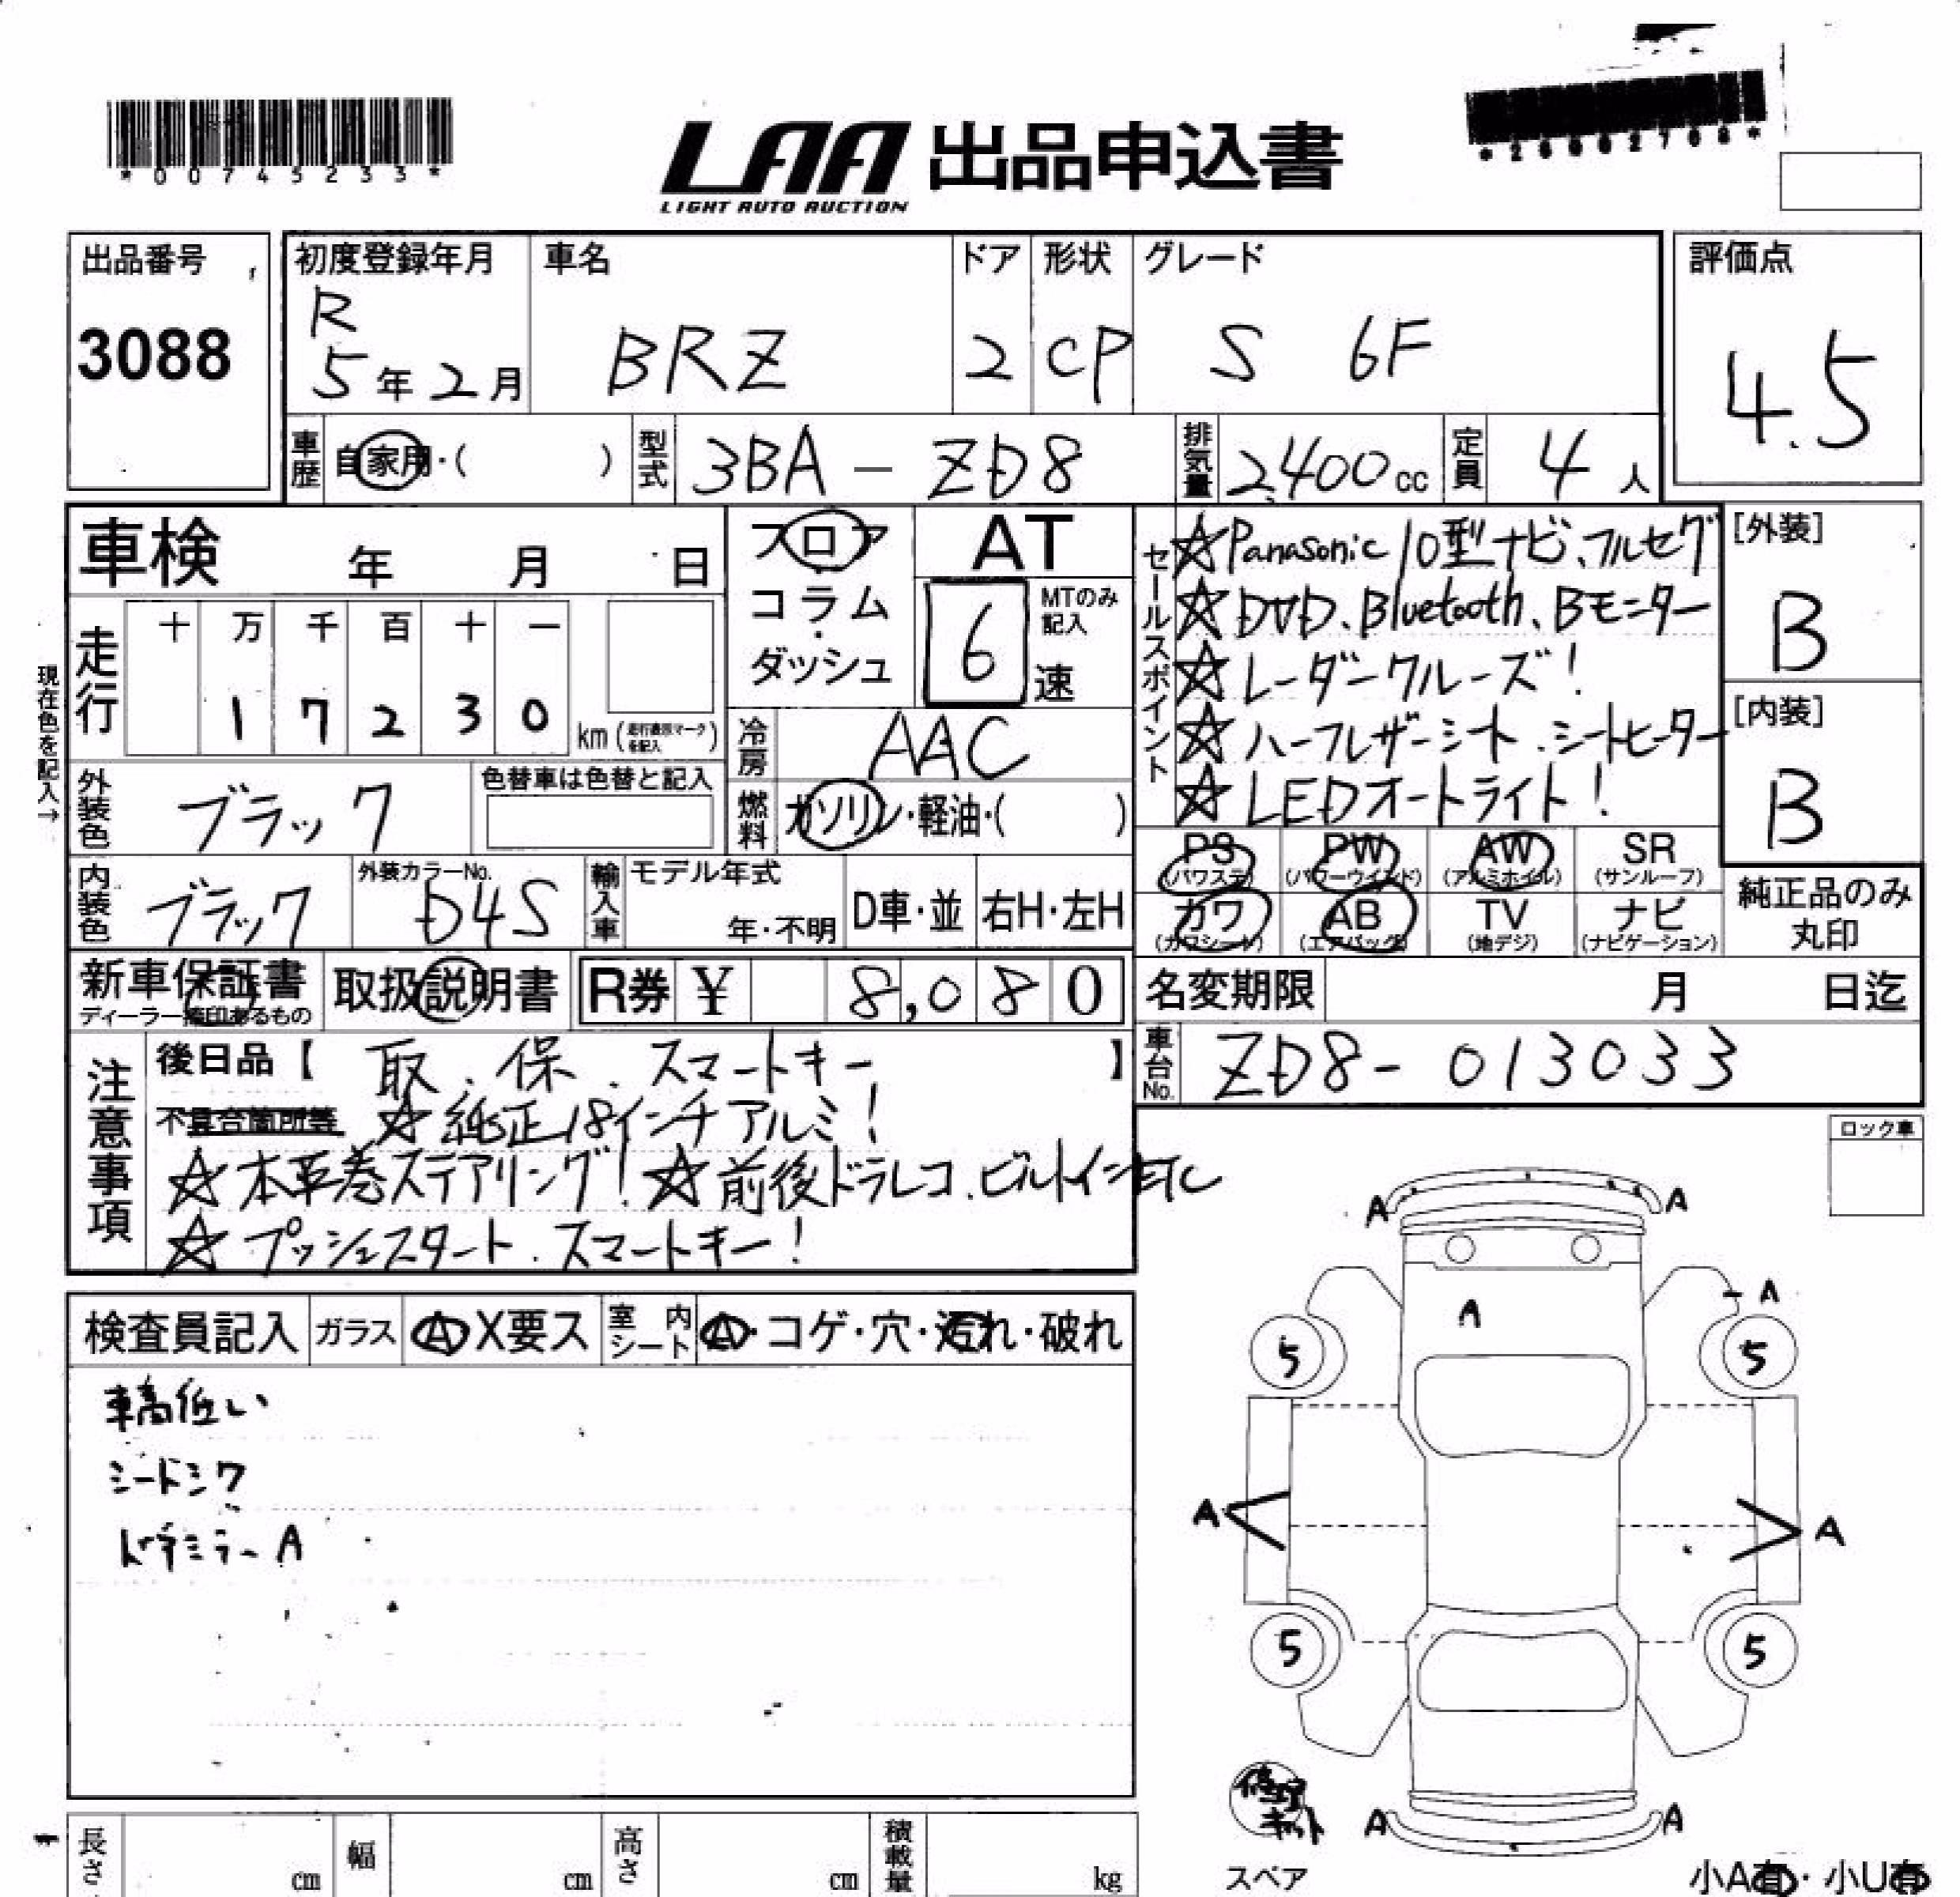 *00745233*
LAA 出品申込書
LIGHT AUTO AUCTION
出品番号 初度登録年月 車名 ドア 形状 グレード 評価点
3088 R 5年2月 BRZ 2 CP S 6F 4.5
車歴 自家用・( ) 型式 3BA - ZD8 排気量 2,400cc 定員 4人
車検 年 月 日
フロア・コラム・ダッシュ
AT
6 速 MTのみ記入
セールスポイント
☆Panasonic 10型ナビ、フルセグ
☆DVD、Bluetooth、Bモニター
☆レーダークルーズ!
☆ハーフレザーシート、シートヒーター
☆LEDオートライト!
[外装]
B
[内装]
B
現在色を記入→
走行 十 万 千 百 十 一
1 7 2 3 0 km
冷房 AAC
外装色 ブラック 色替車は色替と記入
燃料 ガソリン・軽油・( )
PS (パワステ) PW (パワーウインド) AW (アルミホイル) SR (サンルーフ)
カワ (カワシート) AB (エアバッグ) TV (地デジ) ナビ (ナビゲーション)
純正品のみ丸印
内装色 ブラック 外装カラーNo. D4S 輸入車 モデル年式 年・不明 D車・並 右H・左H
新車保証書 取扱説明書 R券 ¥ 8,080 名変期限 月 日迄
ディーラー捺印あるもの
車台No. ZD8- 013033
注意事項
後日品【 取、保、スマートキー 】
不具合箇所等 ☆純正18インチアルミ!
☆本革巻ステアリング!☆前後ドラレコ、ビルトインETC
☆プッシュスタート、スマートキー!
ロック車
検査員記入 ガラス A X要ス 室内シート A・コゲ・穴・汚れ・破れ
車高低い
シートシワ
ドアミラーA
A A
A - A
5 5
A A
5 5
修理キット
A A
スペア
小A有・小U有
長さ cm 幅 cm 高さ cm 積載量 kg